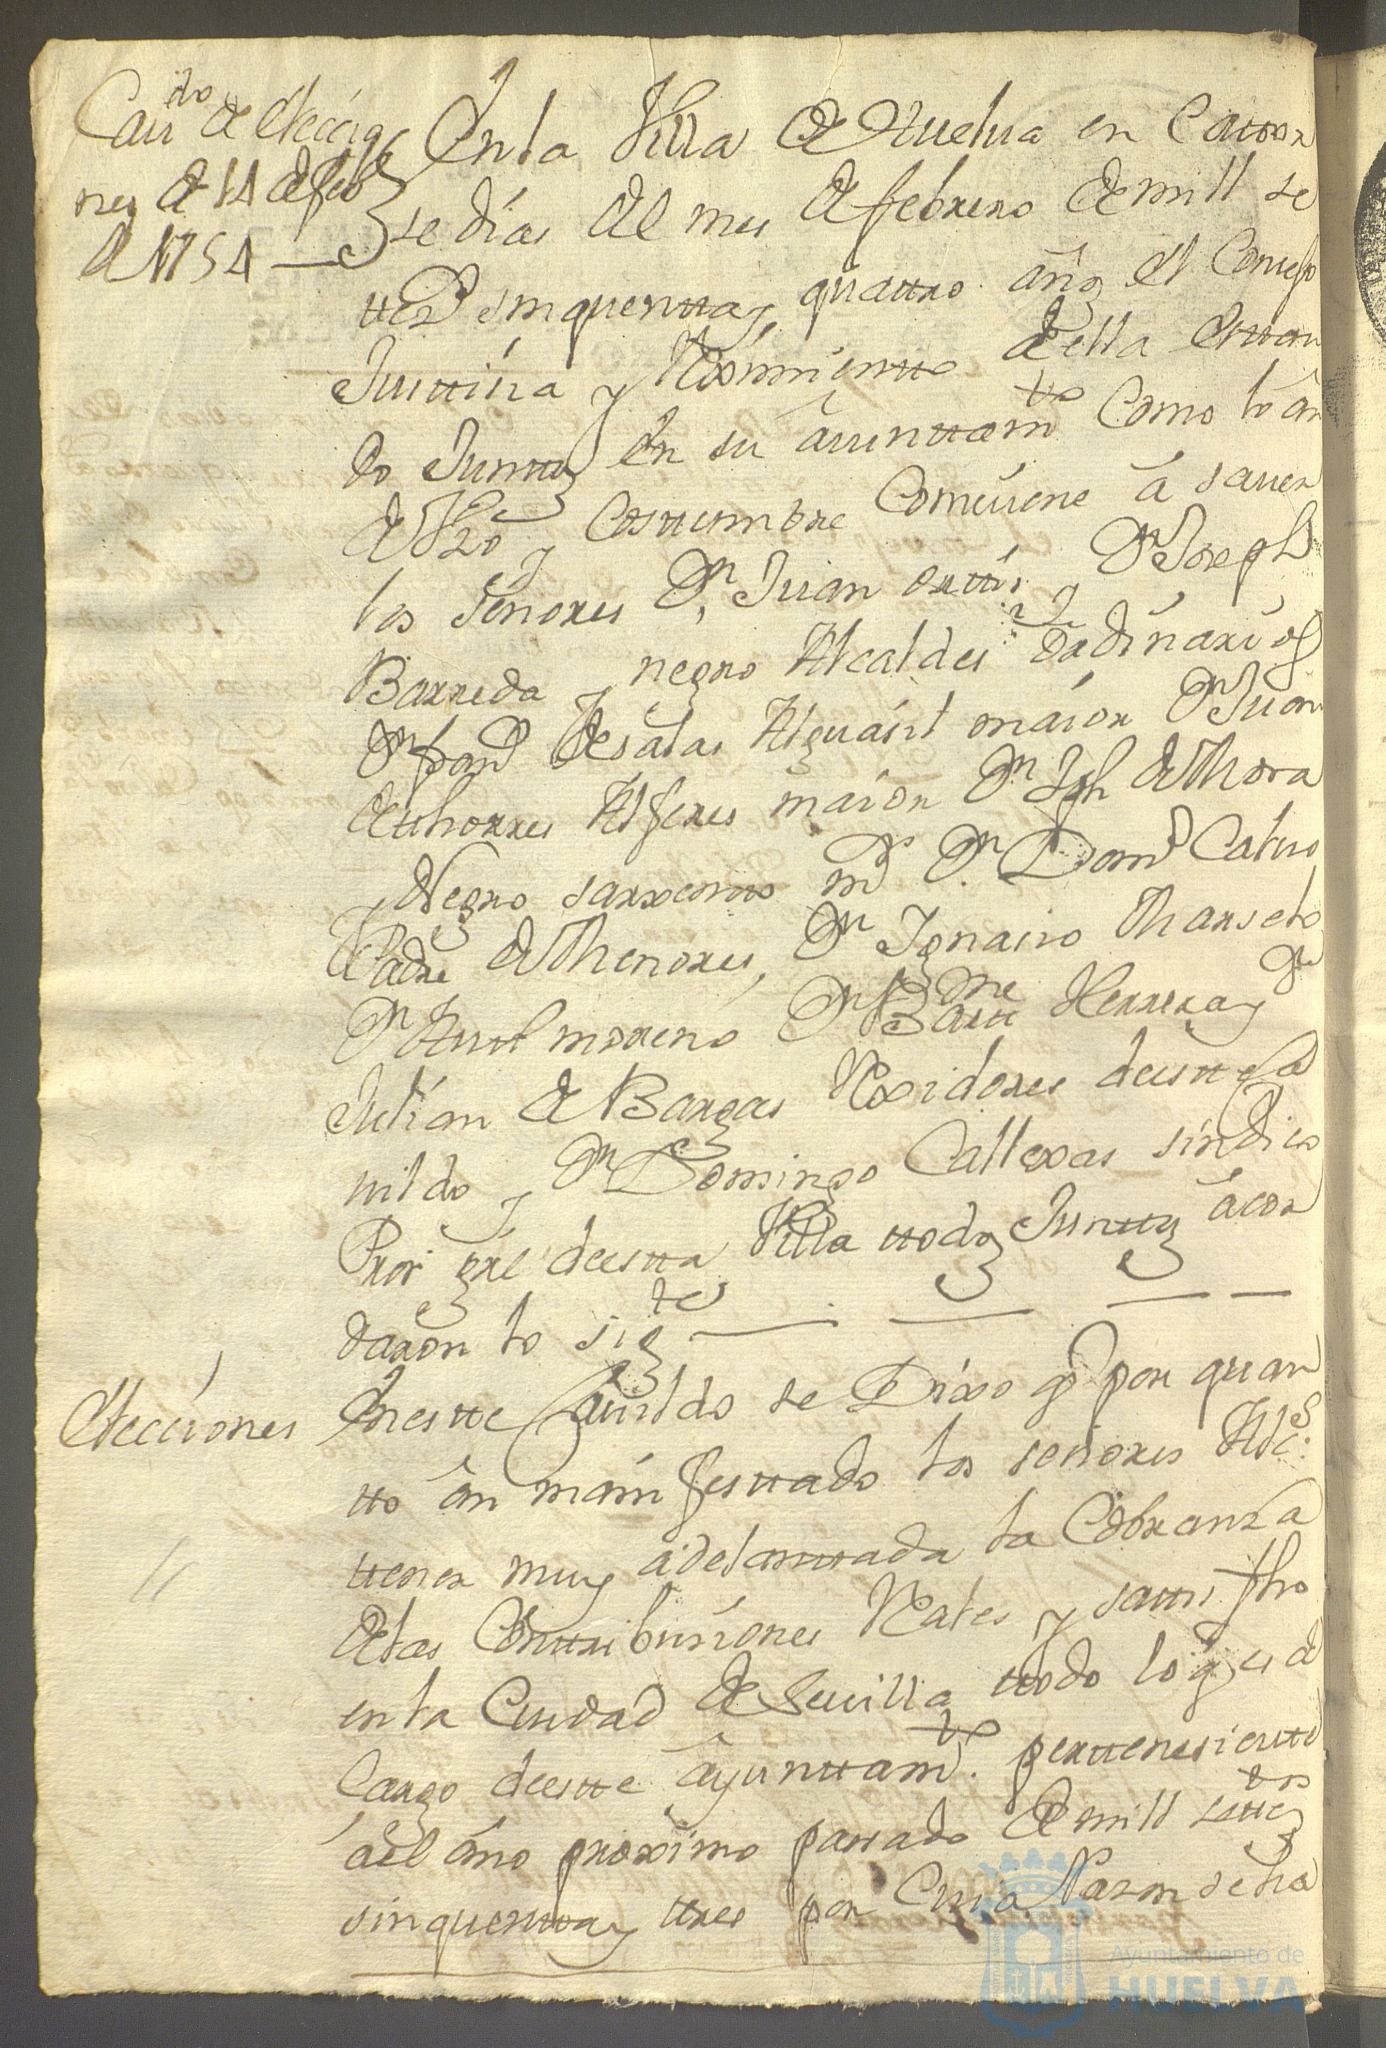 Caudo de Elecçio
nes de 14 de febo
de 1754
En la Villa de Huelua en Cattor
se dias del mes de febrero de mill se
ttez.s sinquentta y quattro años el Consejo
Justtisia y Reximientto de ella esttan
do Junttos en su aiunttamto Como lo an
de Vzo y Costtumbre Comuiene â sauer
los Señores Dn Juan orttis y Dn Joseph
Barreda y negro Alcaldes ordinarios
Dn franco de salas Alguasil maior Dn Juan
de thorres Alferes maior Dn Jph de Mora
y Negro sarxentto mor Dn Domo Calvo
Padre de Menores, Dn Ignasio Marselo
Dn Anttt moreno Dn Bartme Herrera y Dn
Julian de Bargas Rexidores de estte Ca
uildo y Dn Domingo Callexas sindico
Pror gral de estta Villa ttodos Junttos acor
daron lo sigte
Elecciones
En estte Cauildo se Dixo q por quan
tto an manifesttado los señores Alces
ttener muy adelanttada la Cobranza
de las Conttribusiones Rales y sattisfho
en la Ciudad de Seuilla ttodo lo q es de
Cargo de estte ayunttamto perttenesientte
ael año proximo passado de mill settezos
sinquentta y ttres por Cuia Razon se ha
Ayuntamiento de
HUELVA